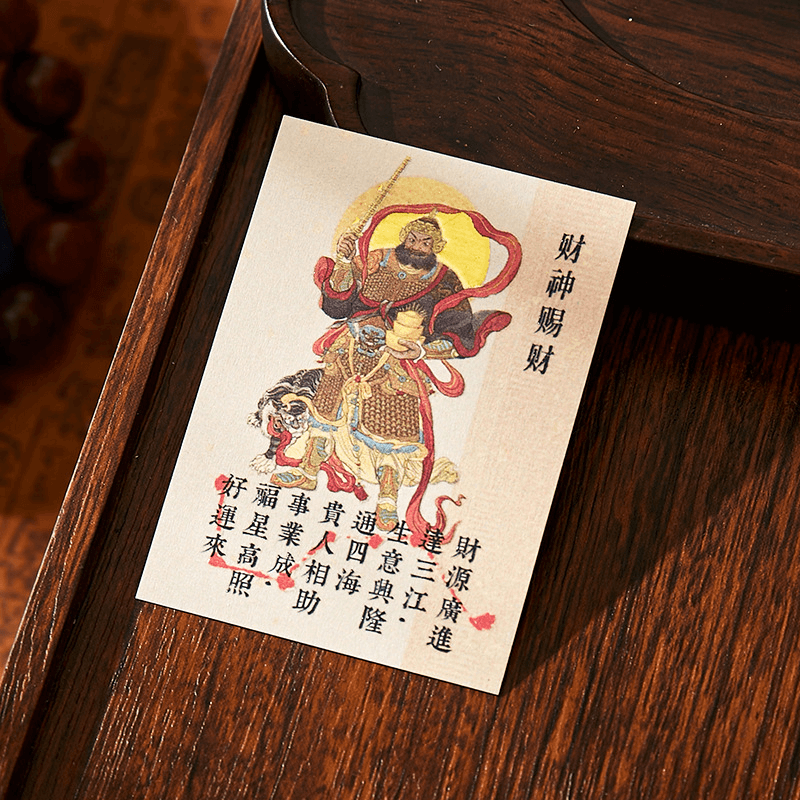 财神赐财
財源廣進
達三江·
生意興隆
通四海
貴人相助
事業成·
福星高照
好運來